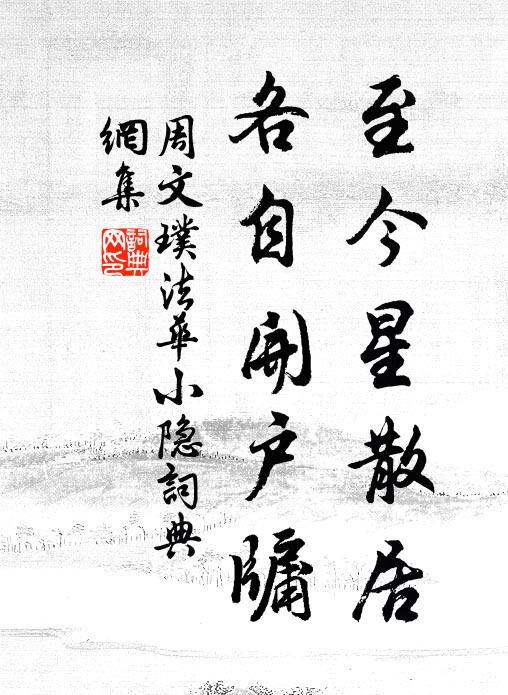 至今星散居
各自開戶牖
周文璞法華小隐詞典
網集
詞典
网印